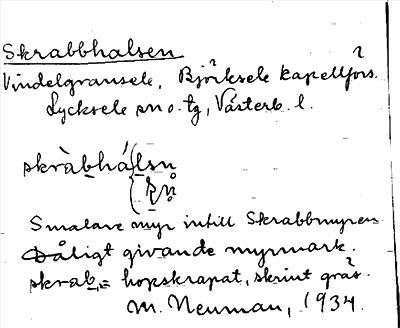 Skrabbhalsen
Vindelgransele, Björksele kapellförs.
Lycksele sn o. tg, Västerb. l.
skràbhálsn
Smalare myr intill Skrabbmyren
Dåligt givande myrmark.
skrab, = hopskrapat, skrint gräs.
M. Neuman, 1934.